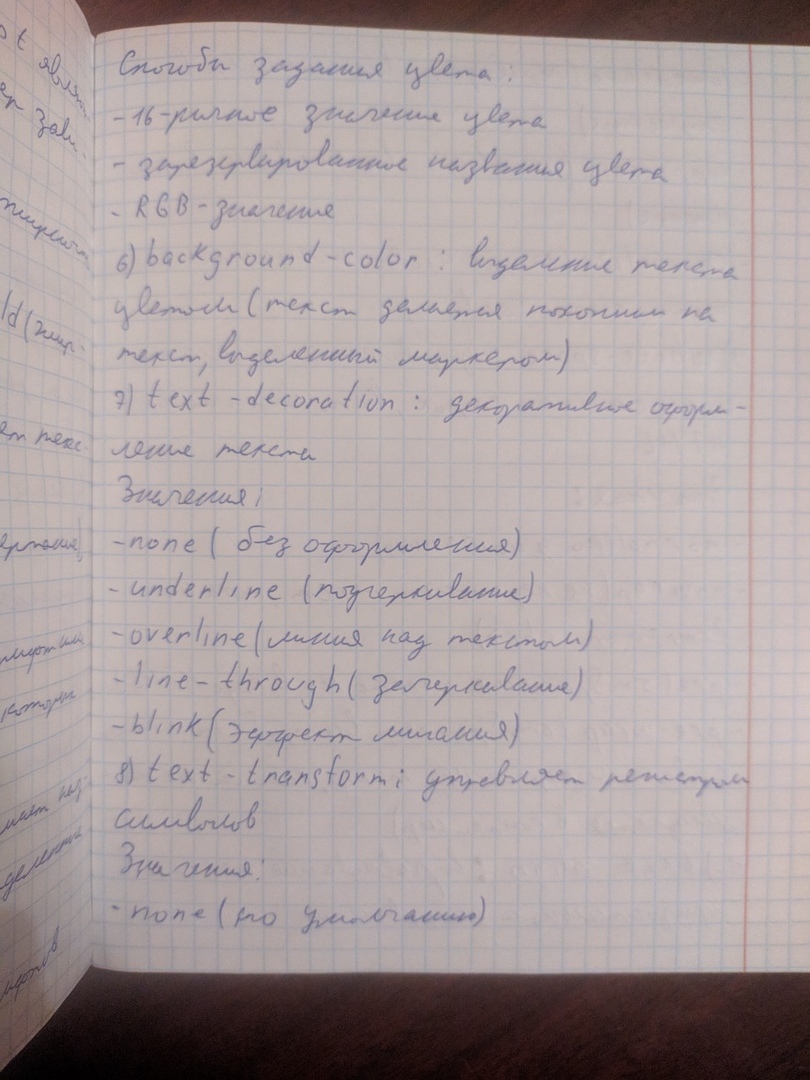 st являет
ер зави-
ld (жир-
ет текс
которы
Способы задания цвета:
- 16-ричное значение цвета
- зарезервированное названия цвета
- RGB-значение
6) background-color: выделение текста
цветом (текст делается похожим на
текст, выделенный маркером)
7) text-decoration: декоративное оформ-
ление текста
Значения:
- none ( без оформления)
- underline (подчеркивание)
- overline (линия над текстом)
- line-through ( зачеркивание)
- blink (эффект мигания)
8) text-transform: управляет регистром
символов
Значения:
- none (по умолчанию)